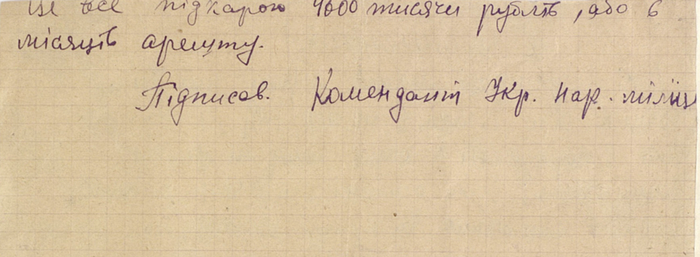 Це все підкарою 4600 тисячи рублів, або 6
місяців арешту.
Підписав. Комендант Укр. нар. міліц